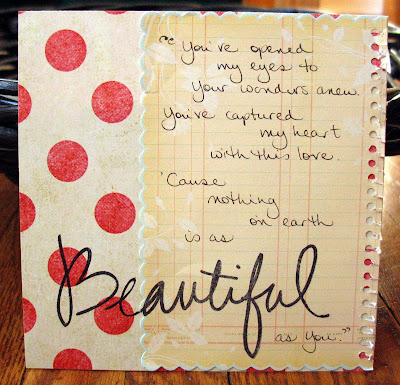 "You've opened
my eyes to
your wonders anew.
You've captured
my heart
with this love.
'Cause
nothing
on earth
is as
Beautiful
as You."